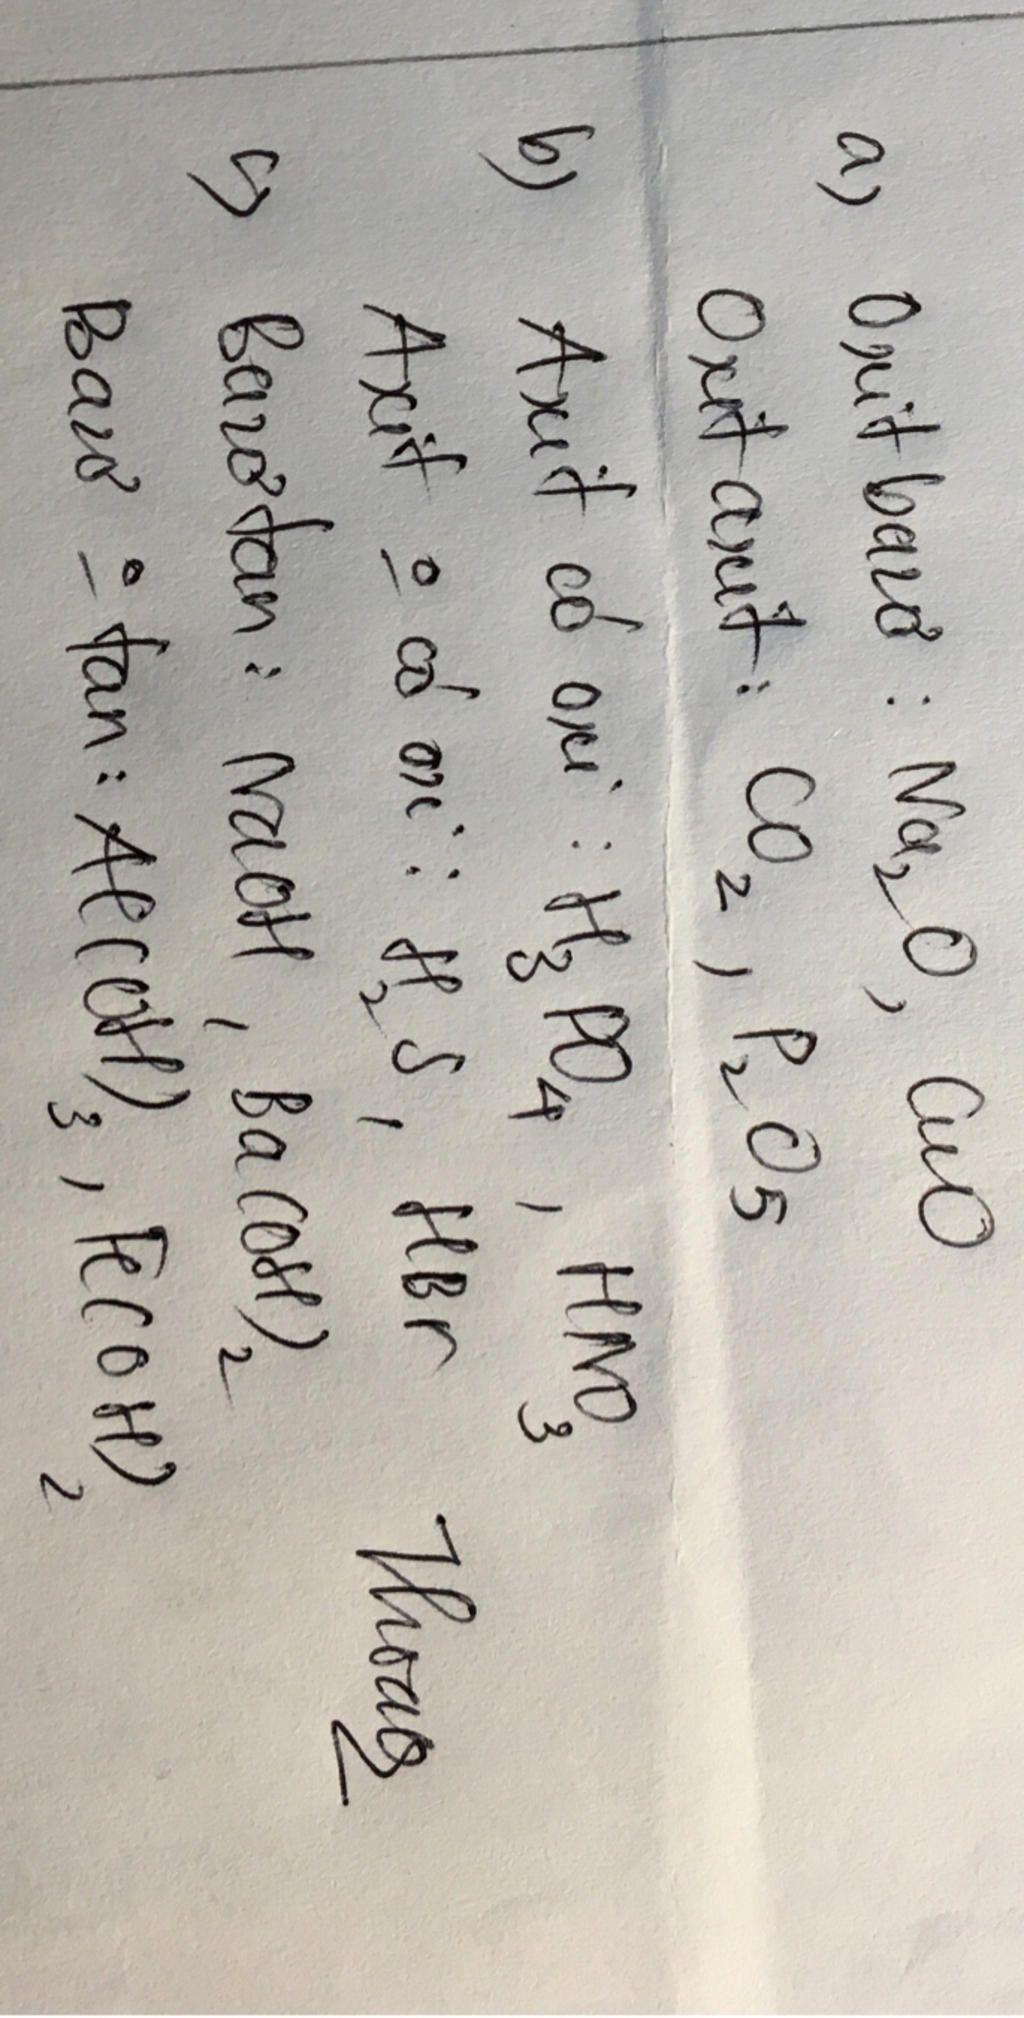 a) Oxit bazơ : Na₂O, CuO
Oxit axit : CO₂, P₂O₅
b) Axit có oxi : H₃PO₄, HNO₃
Axit o̲ có oxi : H₂S, HBr
c) Bazơ tan : NaOH, Ba(OH)₂
Bazơ o̲ tan : Al(OH)₃, Fe(OH)₂